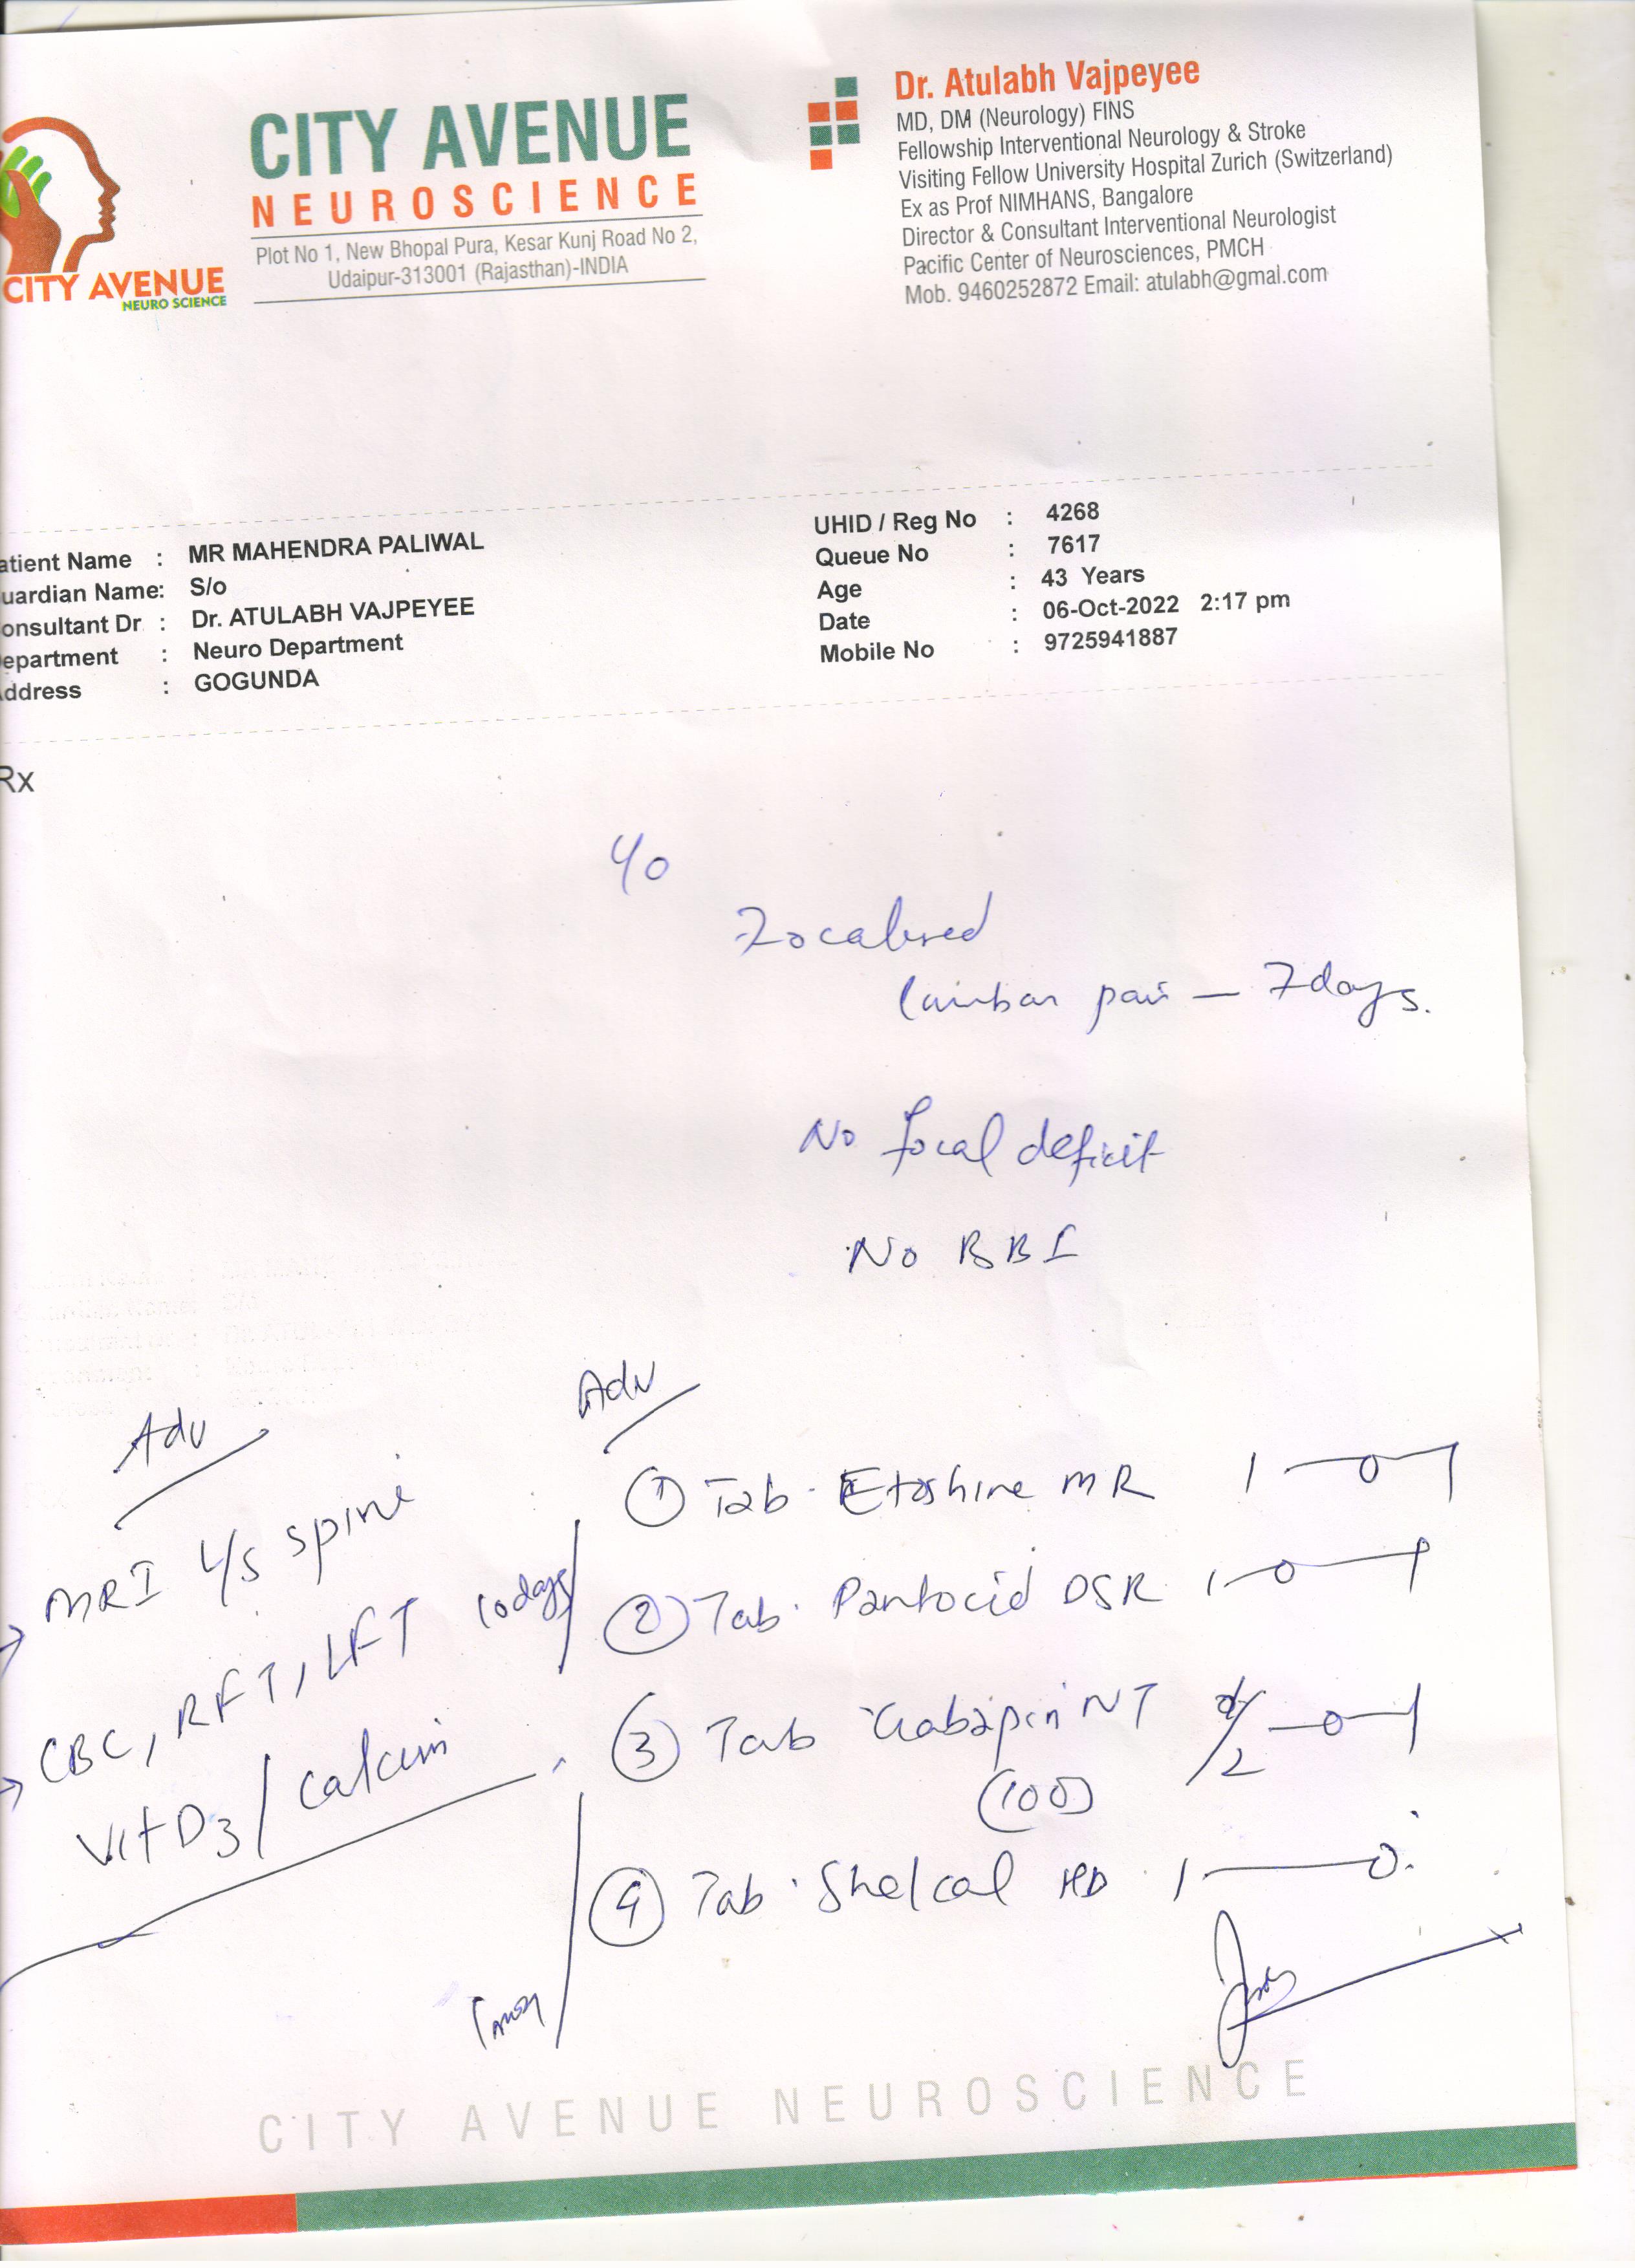 CITY AVENUE
NEUROSCIENCE
Plot No 1, New Bhopal Pura, Kesar Kunj Road No 2,
Udaipur-313001 (Rajasthan)-INDIA
CITY AVENUE
NEURO SCIENCE
Dr. Atulabh Vajpeyee
MD, DM (Neurology) FINS
Fellowship Interventional Neurology & Stroke
Visiting Fellow University Hospital Zurich (Switzerland)
Ex as Prof NIMHANS, Bangalore
Director & Consultant Interventional Neurologist
Pacific Center of Neurosciences, PMCH
Mob. 9460252872 Email: atulabh@gmal.com
atient Name : MR MAHENDRA PALIWAL
uardian Name: S/o
onsultant Dr : Dr. ATULABH VAJPEYEE
epartment : Neuro Department
ddress : GOGUNDA
UHID / Reg No : 4268
Queue No : 7617
Age : 43 Years
Date : 06-Oct-2022 2:17 pm
Mobile No : 9725941887
Rx
Localised
lumbar pain — 7days.
No focal deficit
No BBI
Adv
MRI L/S spine
CBC, RFT, LFT
Vit D3 / calcium
Adv
10days
① Tab. Etoshine MR 1—0—1
② Tab. Pantocid DSR 1—0—1
③ Tab Gabapin NT —0—1
(100)
④ Tab. Shelcal HD 1—0
CITY AVENUE NEUROSCIENCE